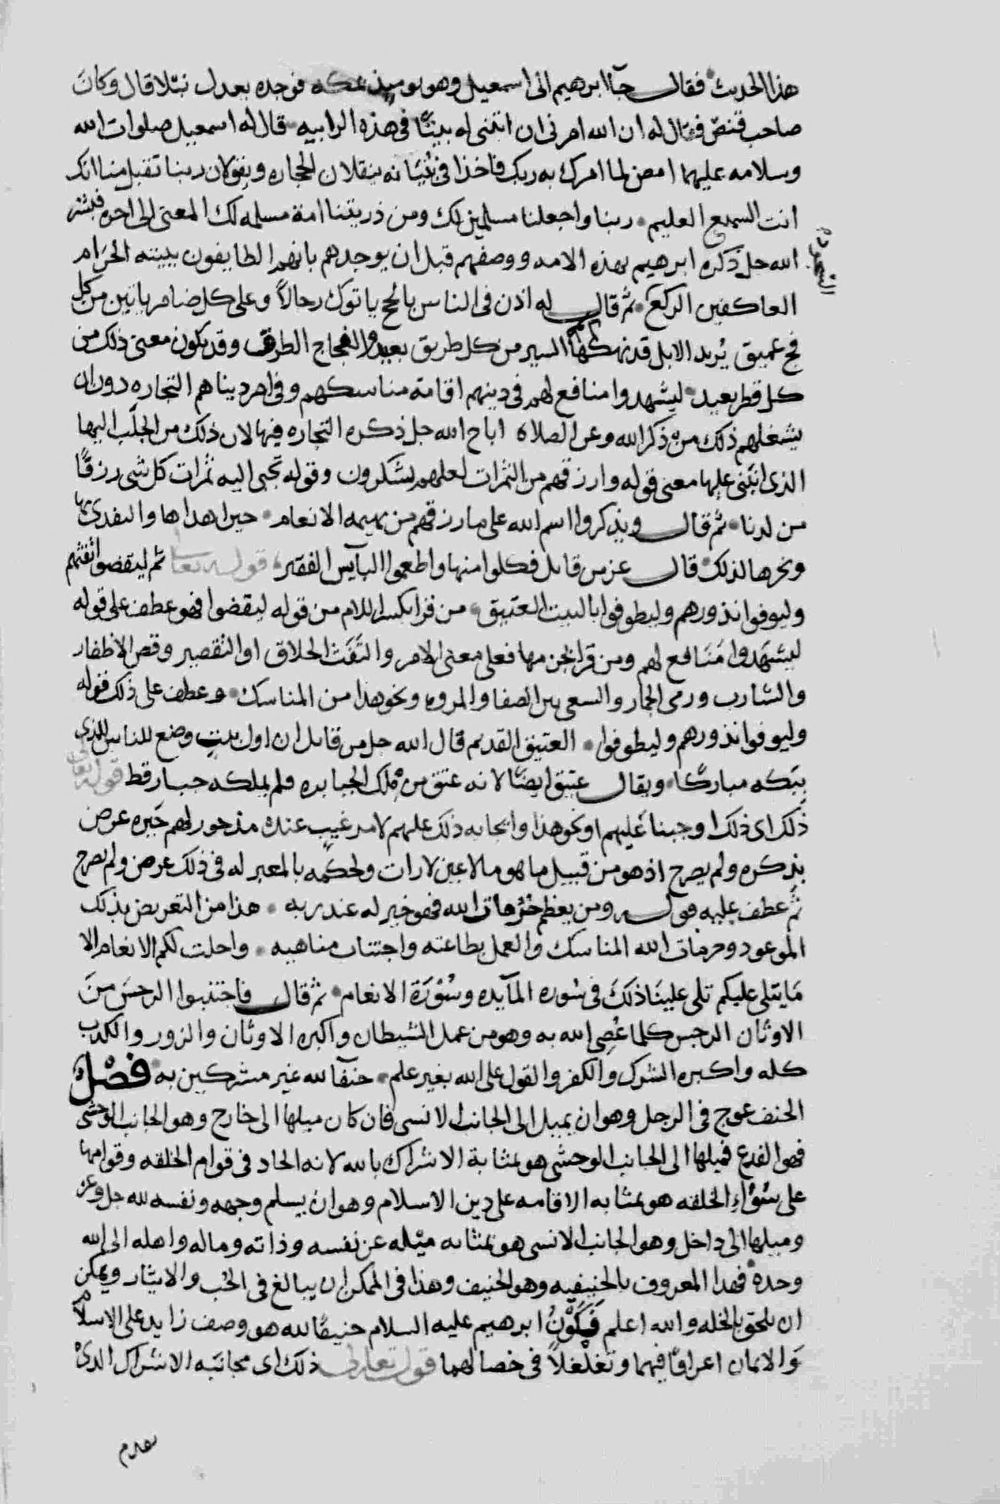 هذا الحديث فقال جآ ابرهيم الى اسمعيل وهو يوميذ بمكه فوجده يعدل نبلا قال وكان
صاحب قنص فقال له ان الله امرنى ان ابتنى له بيتًا فى هذه الرابيه قال له اسمعيل صلوات الله
وسلامه عليهما امض لما امرك به ربك فاخذا فى بنيانه ينقلان الحجاره ويقولان ربنا تقبل منا انك
انت السميع العليم ربنا واجعلنا مسلمين لك ومن ذريتنا امة مسلمه لك المعنى الى اخره فبشر
الله جل ذكره ابرهيم بهذه الامه ووصفهم قبل ان يوجدهم بانهم الطايفون ببيته الحرام
العاكفين الركع ثم قال له اذن فى الناس بالحج ياتوك رجالاً وعلى كل ضامر ياتين من كل
فج عميق يريد الابل قد نهكها السير من كل طريق بعيد والفجاج الطرق وقد يكون معنى ذلك من
كل قطر بعيد ليشهدوا منافع لهم فى دينهم اقامة مناسكهم وفى امر دنياهم التجاره دون ان
يشغلهم ذلك من ذكر الله وعن الصلاة اباح الله جل ذكره التجاره فيها لان ذلك من الجلب اليها
الذى انبنى عليها معنى قوله وارزقهم من الثمرات لعلهم يشكرون وقوله تجبى اليه ثمرات كل شى رزقًا
من لدنا ثم قال ويذكروا اسم الله على ما رزقهم من بهيمه الانعام حين اهداها والتقدى بها
ونحرها لذلك قال عز من قايل فكلوا منها واطعموا البآيس الفقير قوله تعالى ثم ليقضوا تفثهم
وليوفوا نذورهم وليطوفوا بالبيت العتيق من قرا بكسر اللام من قوله ليقضوا فهو عطف على قوله
ليشهدوا منافع لهم ومن قرا بجزمها فعلى معنى الامر والتفث الحلاق او التقصير وقص الاظفار
والشارب ورمى الجمار والسعى بين الصفا والمروه ونحو هذا من المناسك وعطف على ذلك قوله
وليوفوا نذورهم وليطوفوا العتيق القديم قال الله جل من قايل ان اول بيت وضع للناس للذى
ببكه مباركًا ويقال عتيق ايضًا لانه عتق من تملك الجبابره فلم يملكه جبار قط قوله تعالى
ذلك اى ذلك اوجبنا عليهم او نحو هذا وايجابه ذلك عليهم لامر غيب عنده مذخور لهم خيره عرض
بذكره ولم يصرح اذ هو من قبيل ما هو ما لا عين رات ولحكمه بالمعبر له فى ذلك عرض ولم يصرح
ثم عطف عليه قوله ومن يعظم حرمات الله فهو خير له عند ربه هذا من التعريض بذلك
الموعود وحرمات الله المناسك والعمل بطاعته واجتناب مناهيه واحلت لكم الانعام الا
ما يتلى عليكم تلى علينا ذلك فى سوره المآيده وسورة الانعام ثم قال فاجتنبوا الرجس من
الاوثان الرجس كلما عُصى الله به وهو من عمل الشيطان واكبره الاوثان والزور والكذب
كله واكبره الشرك والكفر والقول على الله بغير علم حنفآ لله غير مشركين به فصل
الحنف عوج فى الرجل وهو ان يميل الى الجانب الانسى فان كان ميلها الى خارج وهو الجانب الوحشى
فهو الفدع فميلها الى الجانب الوحشى هو بمثابة الاشراك بالله لانه الحاد فى قوام الخلقه وقوامها
على سوآء الخلقه هو بمثابه الاقامه على دين الاسلام وهو ان يسلم وجهه ونفسه لله جل وعز
وميلها الى داخل وهو الجانب الانسى هو بمثابه ميله عن نفسه وذاته وماله واهله الى الله
وحده فهذا المعروف بالحنيفيه وهو الحنيف وهذا فى الممكن ان يبالغ فى الحب والايثار ويمكن
ان يلحق بالخله والله اعلم فكون ابرهيم عليه السلام حنيفًا لله هو وصف زايد على الاسلام
والايمان اعراقًا فيهما وتغلغلاً فى خصالهما قوله تعالى ذلك اى مجانبه الاشراك الذى